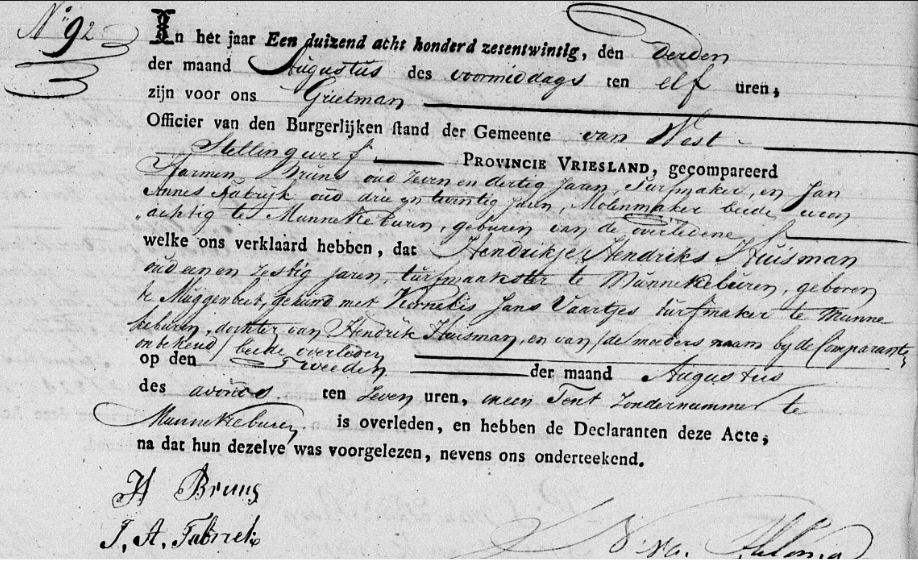 N° 92
In het jaar Een duizend acht honderd zesentwintig, den derden
der maand Augustus des voormiddags ten elf uren,
zijn voor ons Grietman
Officier van den Burgerlijken stand der Gemeente van West
Stellingwerf PROVINCIE VRIESLAND, gecompareerd
Harmen Bruns oud zeven en dertig jaren, Turfmaker, en Jan
Annes Fabrijk oud drie en twintig jaren, Molenmaker beide woon
achtig te Munnekeburen, geburen van de overledene
welke ons verklaard hebben, dat Hendrikje Hendriks Huisman
oud een en zestig jaren, turfmaakster te Munnekeburen, geboren
te Muggenbeet, gehuwd met Kornelis Jans Vaartjes turfmaker te Munne
keburen, dochter van Hendrik Huisman, en van /de moeders naam by de Comparanten
onbekend/ beide overleden
op den Tweeden der maand Augustus
des avonds ten zeven uren, in een Tent zonder nummer te
Munnekeburen is overleden, en hebben de Declaranten deze Acte,
na dat hun dezelve was voorgelezen, nevens ons onderteekend.
H Bruns
J. A. Fabriek